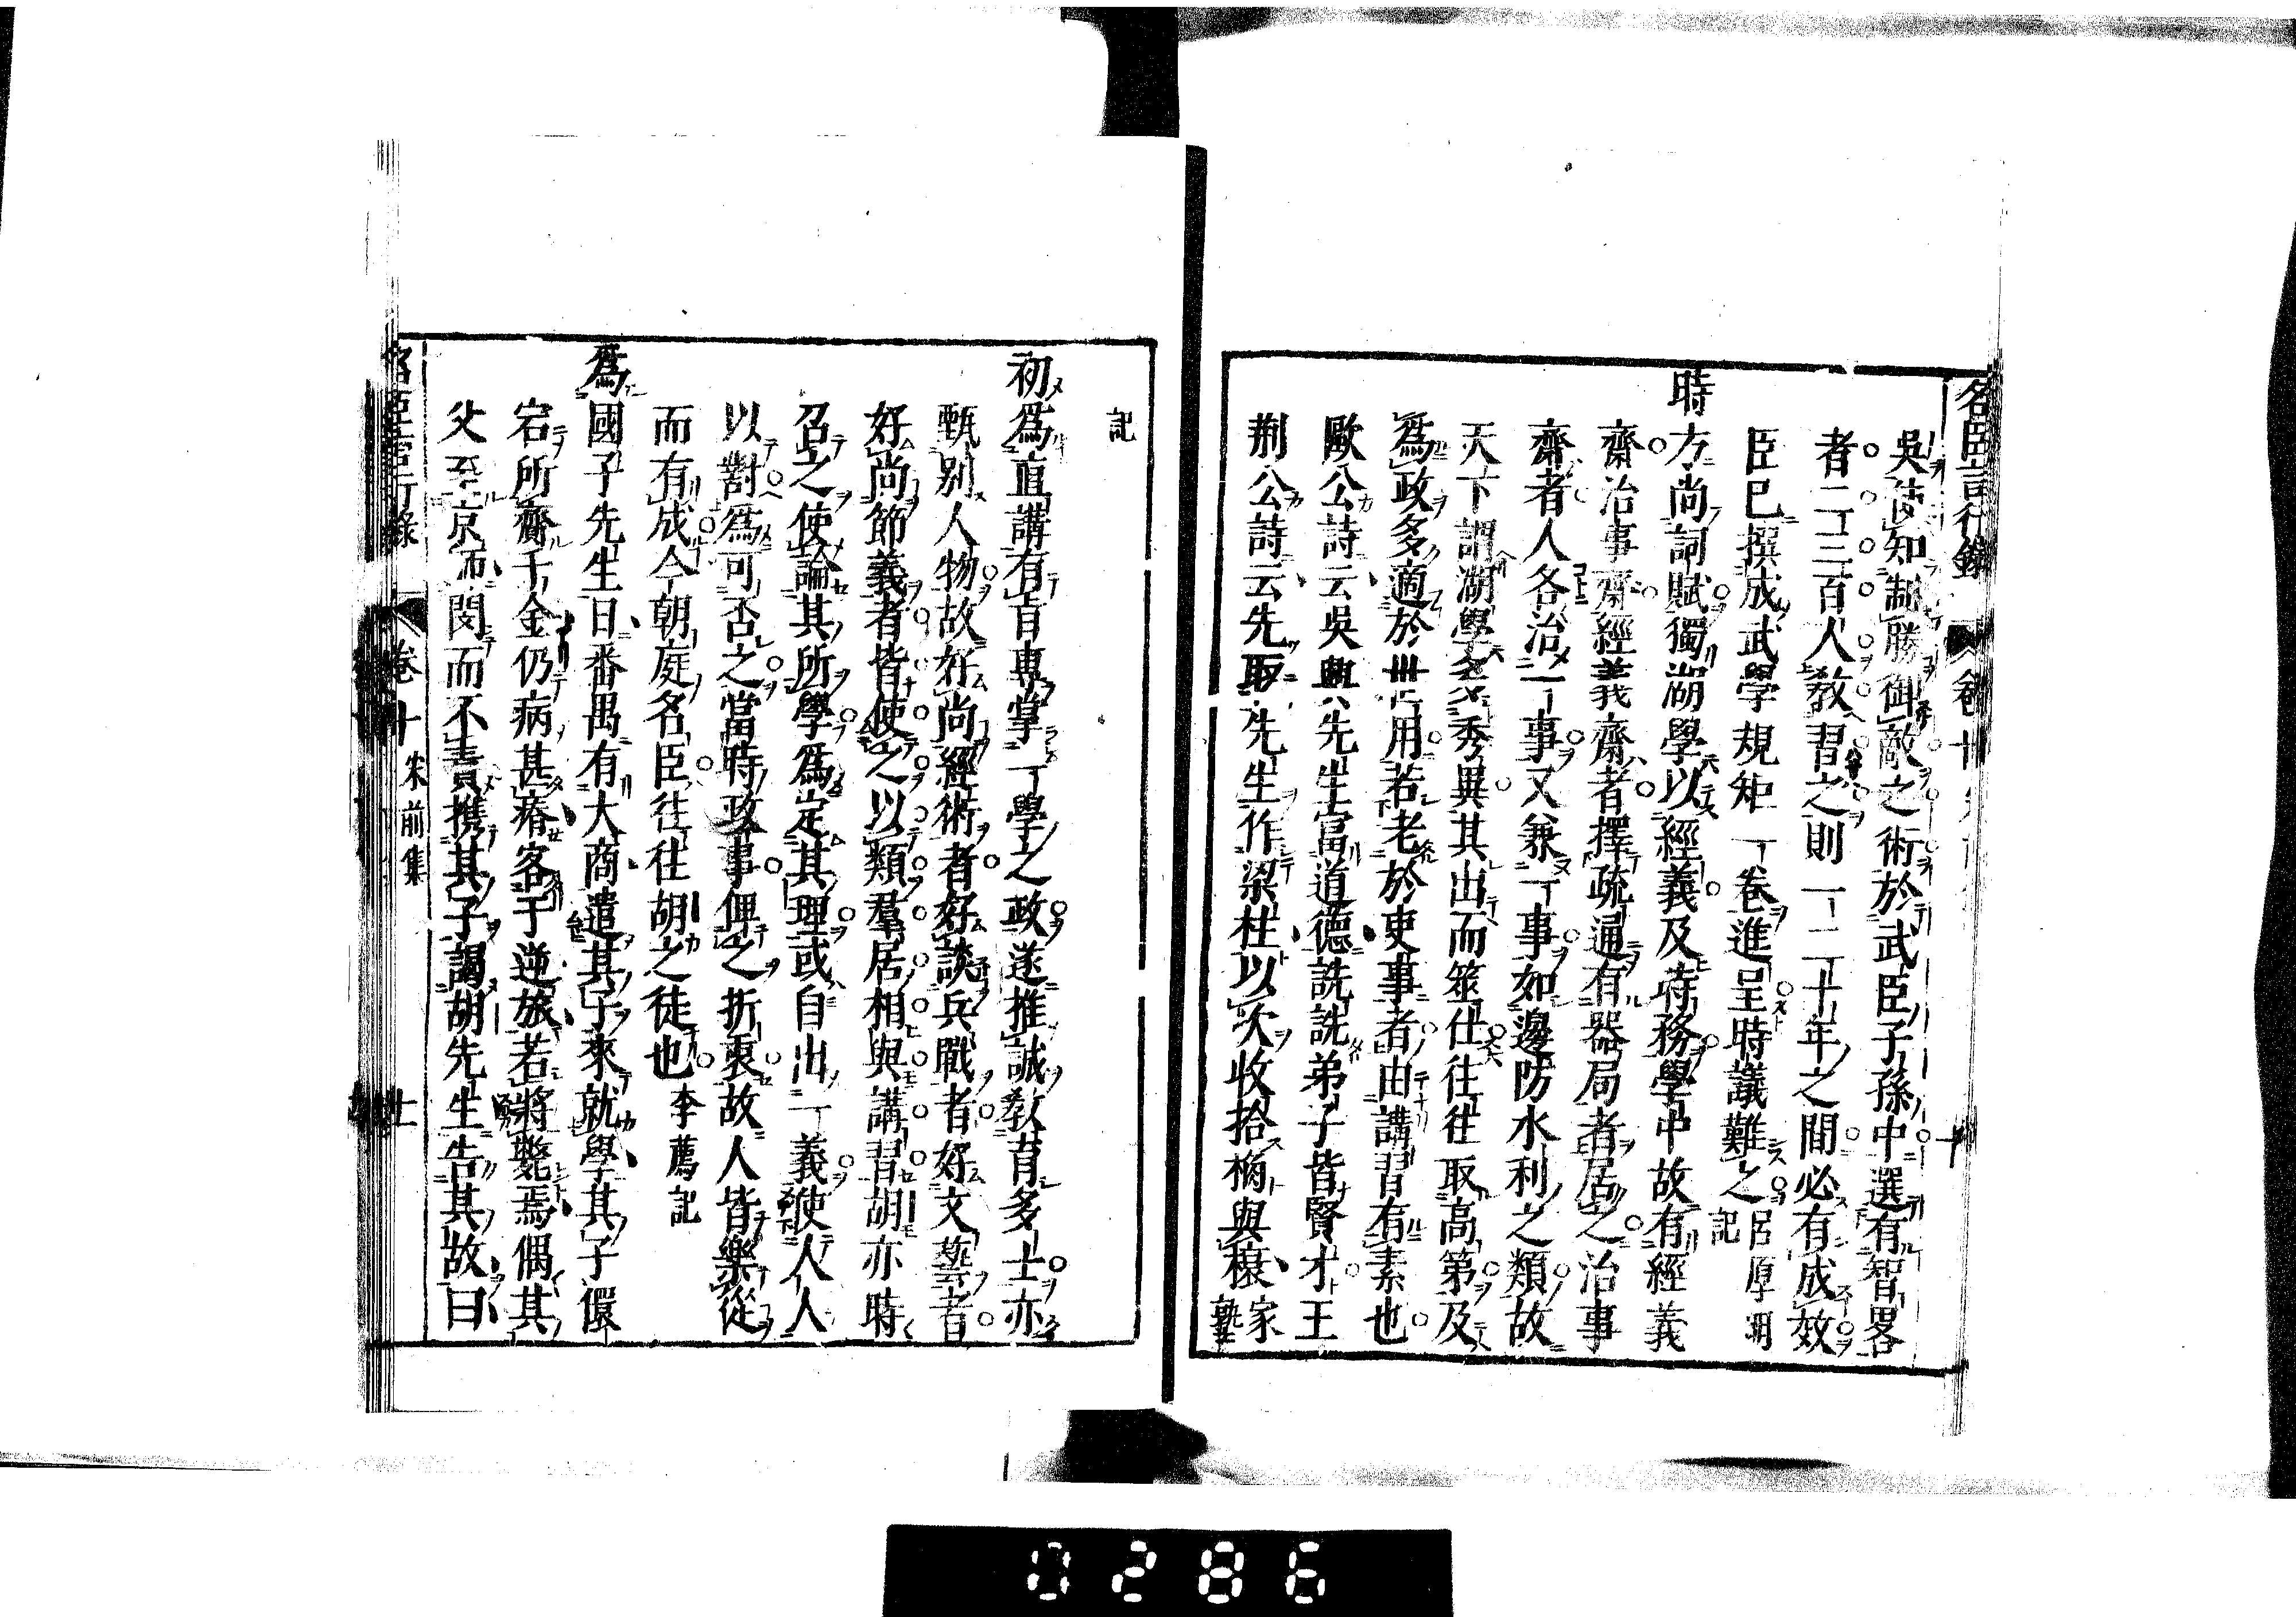 名臣言行錄 卷十
吳使知制勝御敵之術於武臣子孫中選有智畧
者二三百人教習之則一二十年之間必有成效
臣已撰成武學規矩一卷進呈時議難之呂原明記
時方尚詞賦獨湖學以經義及時務學中故有經義
齋治事齋經義齋者擇疏通有器局者居之治事
齋者人各治一事又兼一事如邊防水利之類故
天下謂湖學多秀異其出而筮仕往往取高第及
爲政多適於世用若老於吏事者由講習有素也
歐公詩云吳興先生富道德詵詵弟子皆賢才王
荆公詩云先取先生作梁柱以次收拾桷與榱家塾
記
初爲直講有旨專掌一學之政遂推誠敎育多士亦
甄別人物故好尚經術者好談兵戰者好文藝者
好尚節義者皆使之以類羣居相與講習胡亦時
召之使論其所學爲定其理或自出一義使人人
以對爲可否之當時政事俾之折衷故人皆樂從
而有成今朝庭名臣往往胡之徒也李廌記
爲國子先生日番禺有大商遣其子來就學其子儇
宕所齎千金仍病甚瘠客于逆旅若將斃焉偶其
父至京師閔而不責携其子謁胡先生告其故曰
名臣言行錄 卷十 宋前集 十一
0286